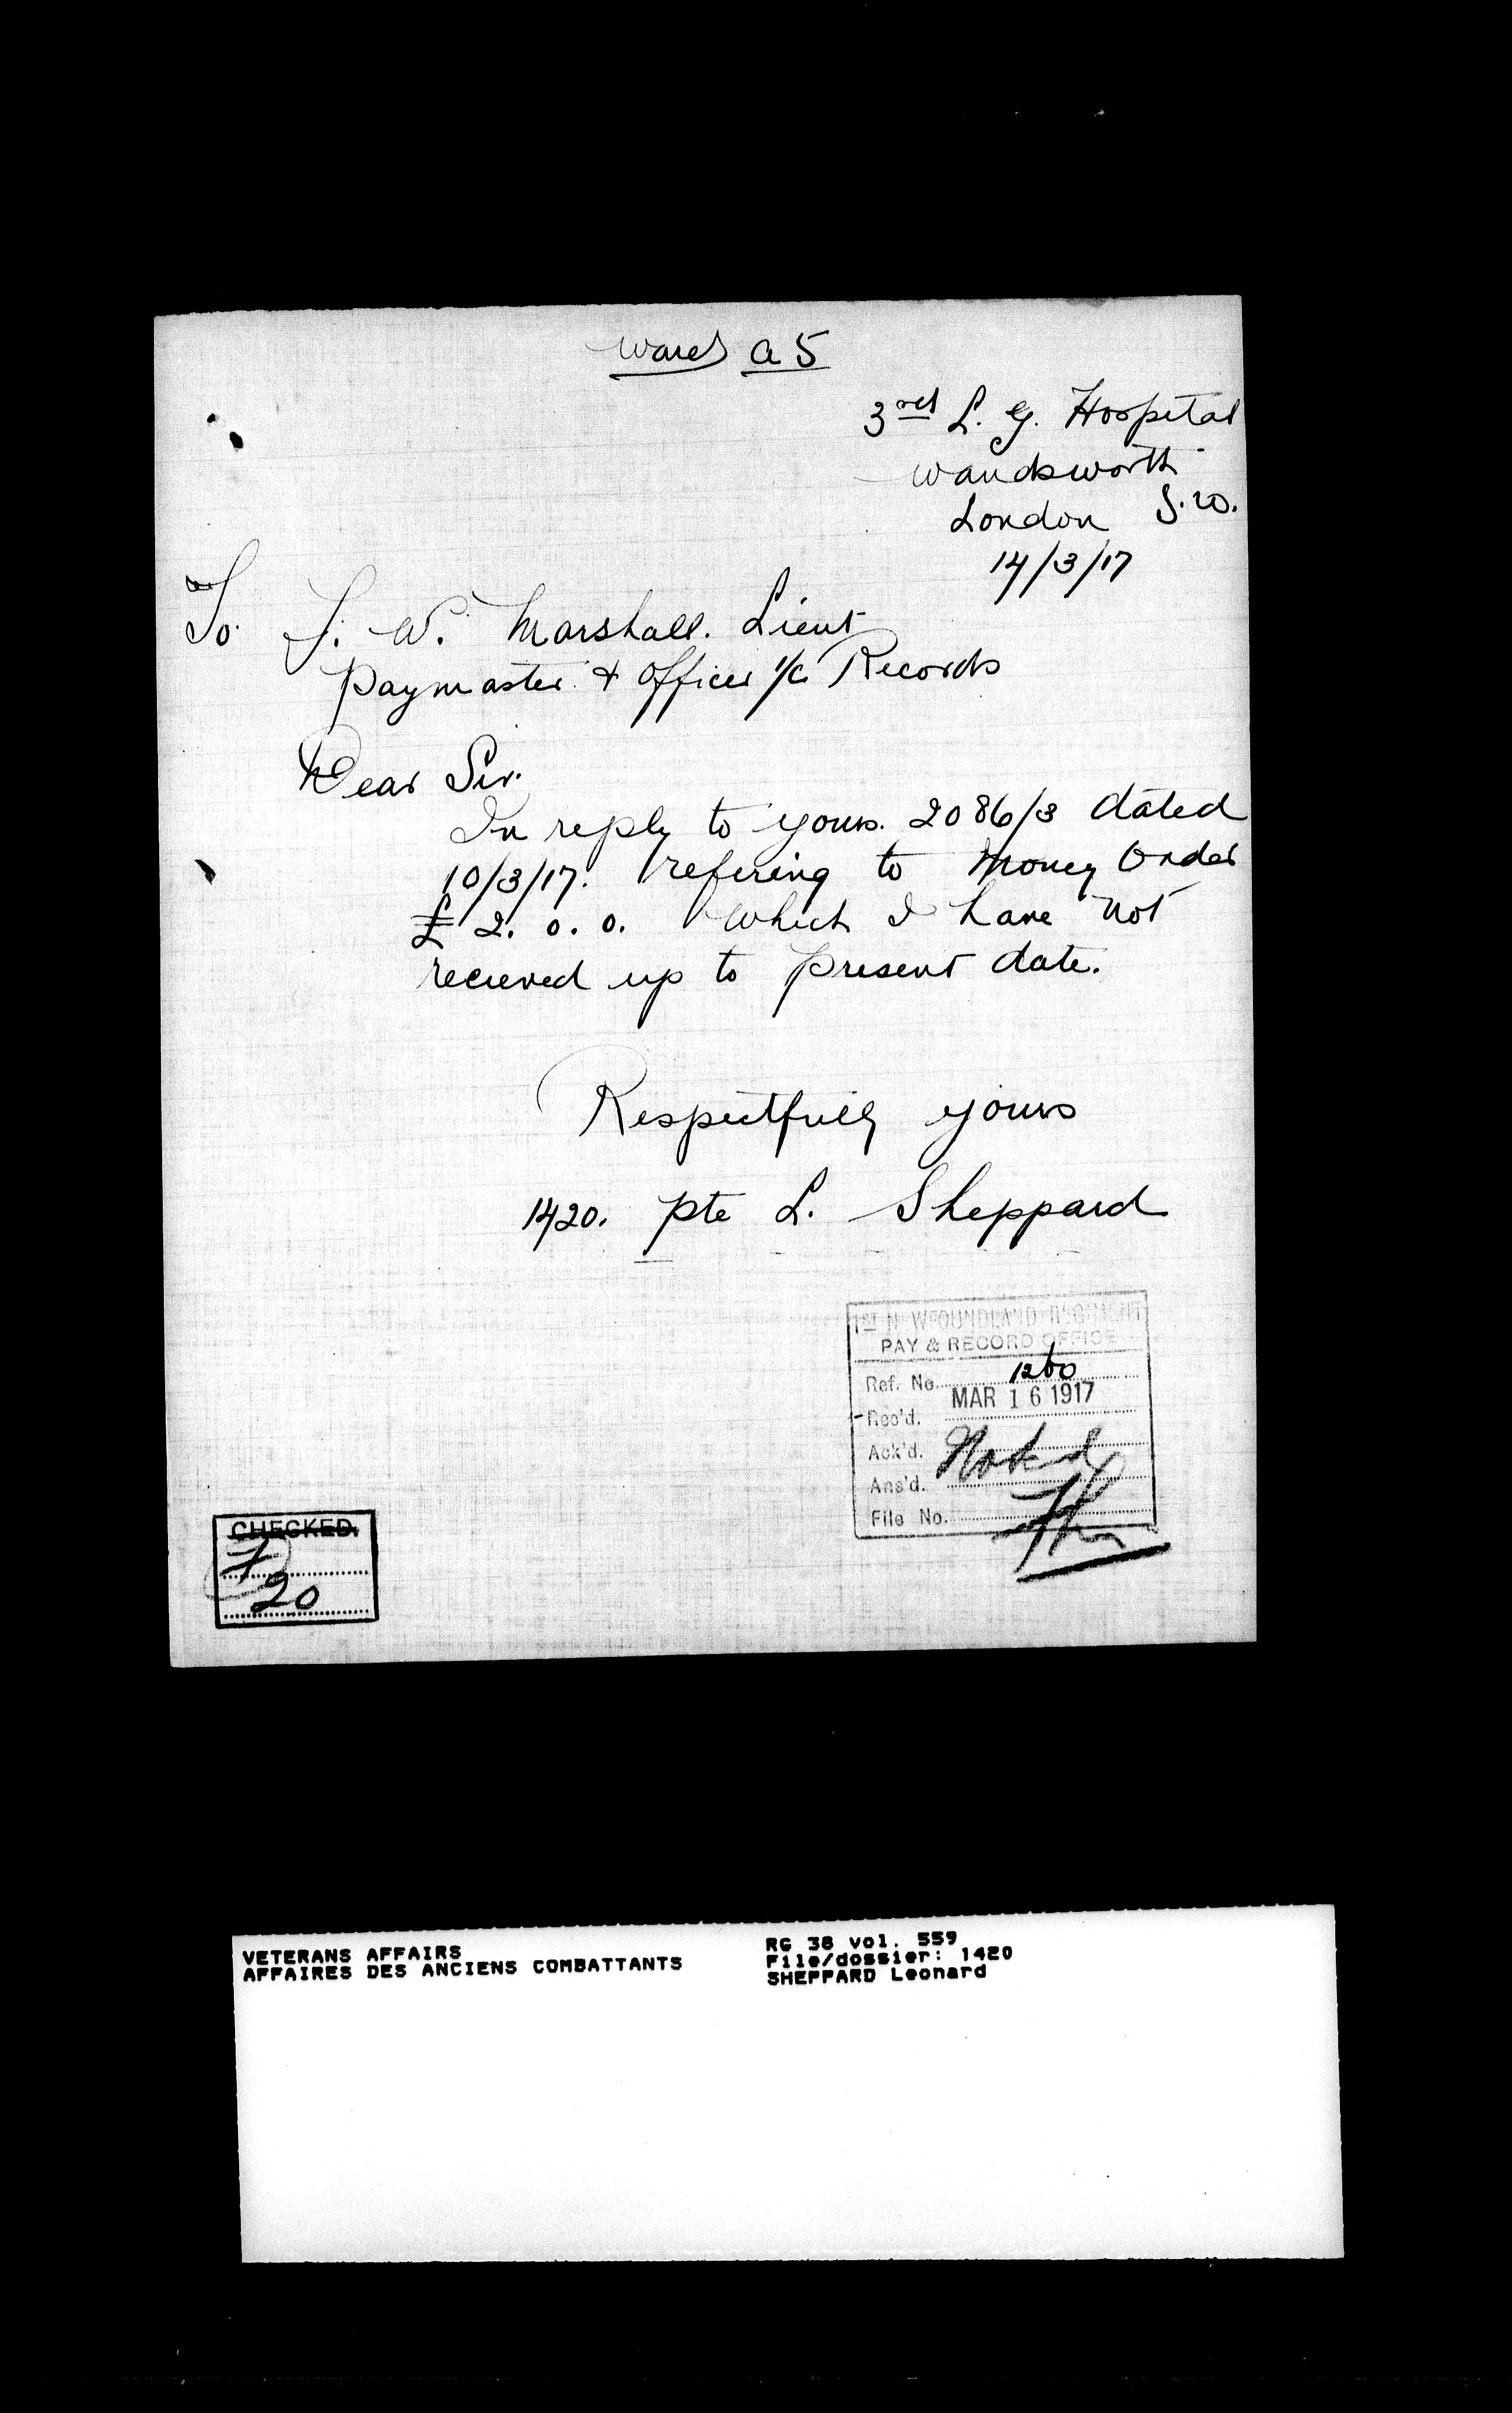 Ward A 5
3rd L. G. Hospital
Wandsworth
London S.W.
14/3/17
To. J. W. Marshall. Lieut
Paymaster & Officer i/c Records
Dear Sir.
In reply to yours. 2086/3 dated
10/3/17. refering to Money Order
£ 2. 0. 0. Which I have not
recieved up to present date.
Respectfully yours
1420. Pte L. Sheppard
1ST NEWFOUNDLAND REGIMENT
PAY & RECORD OFFICE
Ref. No. 1260
Rec'd. MAR 16 1917
Ack'd. Noted
Ans'd.
File No.
CHECKED.
20
VETERANS AFFAIRS
AFFAIRES DES ANCIENS COMBATTANTS
RG 38 Vol. 559
File/dossier: 1420
SHEPPARD Leonard